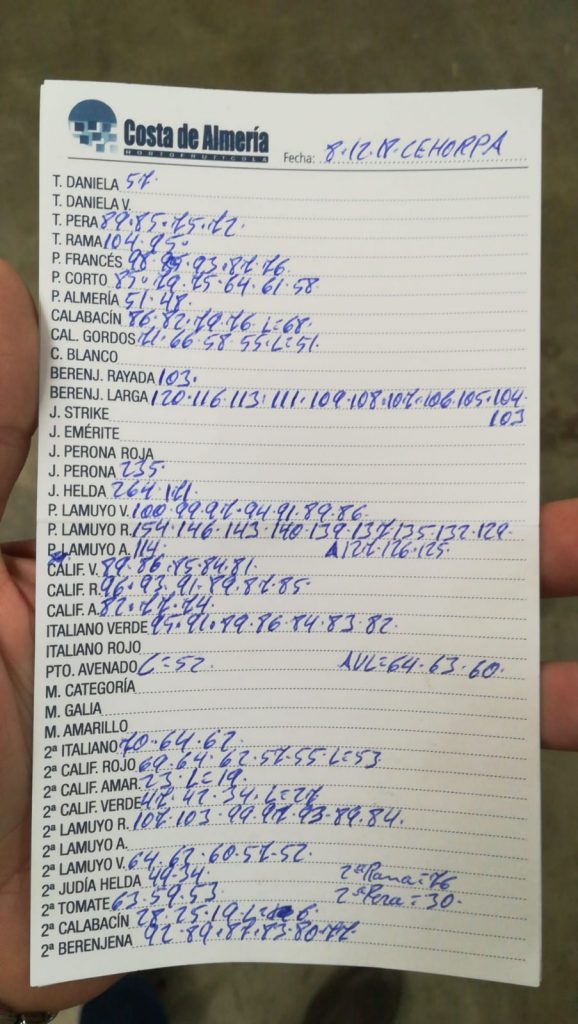 Costa de Almería
HORTOFRUTICOLA
Fecha: 8.12.17. CEHORPA
T. DANIELA 57.
T. DANIELA V.
T. PERA 89.85.75.72.
T. RAMA 104.95.
P. FRANCÉS 98.95.93.87.76.
P. CORTO 85.79.75.64.61.58
P. ALMERÍA 51.48.
CALABACÍN 86.82.79.76. L=68.
CAL. GORDOS 71.66.58.55.L=51.
C. BLANCO
BERENJ. RAYADA 103.
BERENJ. LARGA 120.116.113.111.109.108.107.106.105.104.
103
J. STRIKE
J. EMÉRITE
J. PERONA ROJA
J. PERONA 235.
J. HELDA 264.171.
P. LAMUYO V. 100.99.97.94.91.89.86.
P. LAMUYO R. 154.146.143.140.139.137.135.132.129.
P. LAMUYO A. 114. 127.126.125.
CALIF. V. 89.86.85.84.81.
CALIF. R. 96.93.91.89.87.85.
CALIF. A. 82.77.74.
ITALIANO VERDE 95.91.89.86.84.83.82.
ITALIANO ROJO
PTO. AVENADO L=52. AVL=64.63.60.
M. CATEGORÍA
M. GALIA
M. AMARILLO
2ª ITALIANO 70.64.62.
2ª CALIF. ROJO 69.64.62.57.55.L=53
2ª CALIF. AMAR. 23. L=19.
2ª CALIF. VERDE 47.42.34.L=27
2ª LAMUYO R. 107.103.99.97.93.89.84.
2ª LAMUYO A.
2ª LAMUYO V. 64.63.60.57.52.
2ª JUDÍA HELDA 49.34. 2ª Rama=76
2ª TOMATE 63.59.53. 2ª Pera=30.
2ª CALABACÍN 28.25.19.L=6.
2ª BERENJENA 92.89.87.83.80.77.